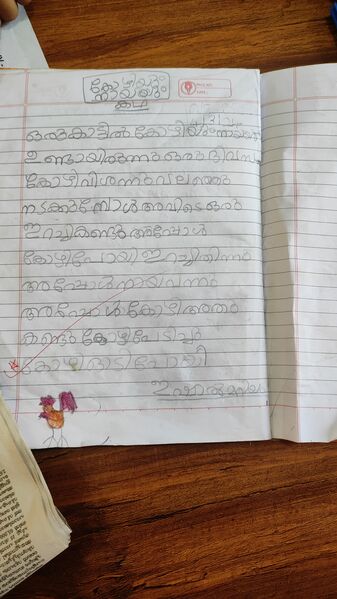 കോഴിയും
നായയും
കഥ
ഒരു കാട്ടിൽ കോഴിയും നായയും
ഉണ്ടായിരുന്നു ഒരു ദിവസം
കോഴി വിശന്നു വലഞ്ഞു
നടക്കുമ്പോൾ അവിടെ ഒരു
ഇറച്ചി കണ്ടു അപ്പോൾ
കോഴി പോയി ഇറച്ചി തിന്നു
അപ്പോൾ നായ വന്നു
അപ്പോൾ കോഴി അതു
കണ്ടു കോഴി പേടിച്ചു
കോഴി ഓടി പോയി